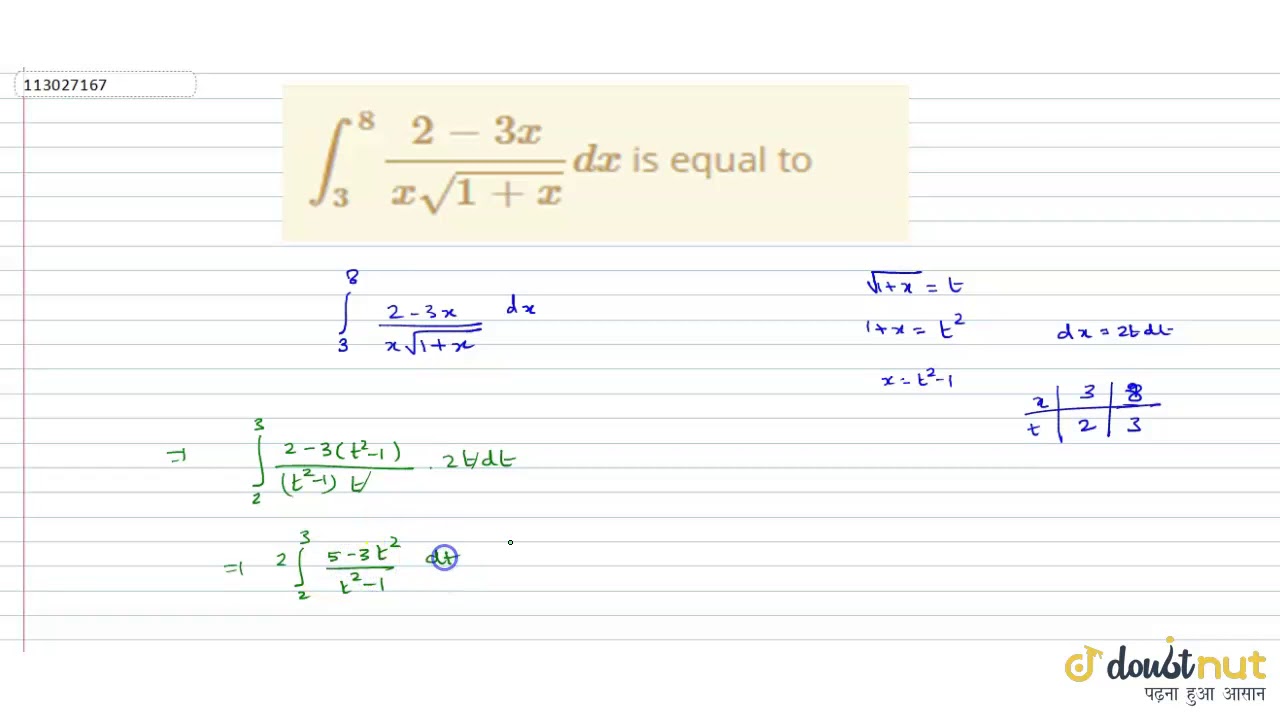 113027167
∫₃⁸ (2 − 3x)/(x√(1 + x)) dx is equal to
∫₃⁸ (2 - 3x)/(x√(1+x)) dx
√(1+x) = t
1+x = t²
dx = 2t dt
x = t²-1
x | 3 | 8
t | 2 | 3
⇒ ∫₂³ (2-3(t²-1))/((t²-1) t) . 2t dt
⇒ 2 ∫₂³ (5-3t²)/(t²-1) dt
doubtnut
पढ़ना हुआ आसान